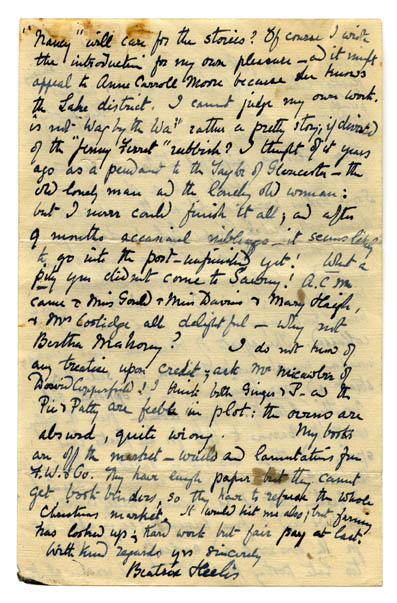 "Nancy" will care for the stories? Of course I wrote
the introduction for my own pleasure – and it might
appeal to Anne Carroll Moore because she knows
the Lake district. I cannot judge my own work.
is not "Wag by the Wa'" rather a pretty story, if divested
of the "Jenny Ferret" rubbish? I thought of it years
ago as a pendant to the Taylor of Gloucester – the
old lonely man and the lonely old woman:
but I never could finish it all; and after
9 months occasional nibblings – it seems likely
to go into the post – unfinished yet! What a
pity you did not come to Sawrey! A.C.M.
came & Miss Gould & Miss Davis & Mary Haugh,
& Mrs Coolidge all delightful – why not
Bertha Mahony? I do not know of
any treatise upon credit; ask Mr Micawber of
David Copperfield! I think both Ginger & P – and the
Pie & Patty are feeble in plot: the ovens are
absurd, quite wrong. My books
are off the market – wails and lamentations from
F.W. & Co. They have enough paper but they cannot
get book binders, so they have to refuse the whole
Christmas market. It would hit me also; but farming
has looked up; hard work but fair pay at last.
With kind regards yrs sincerely
Beatrix Heelis